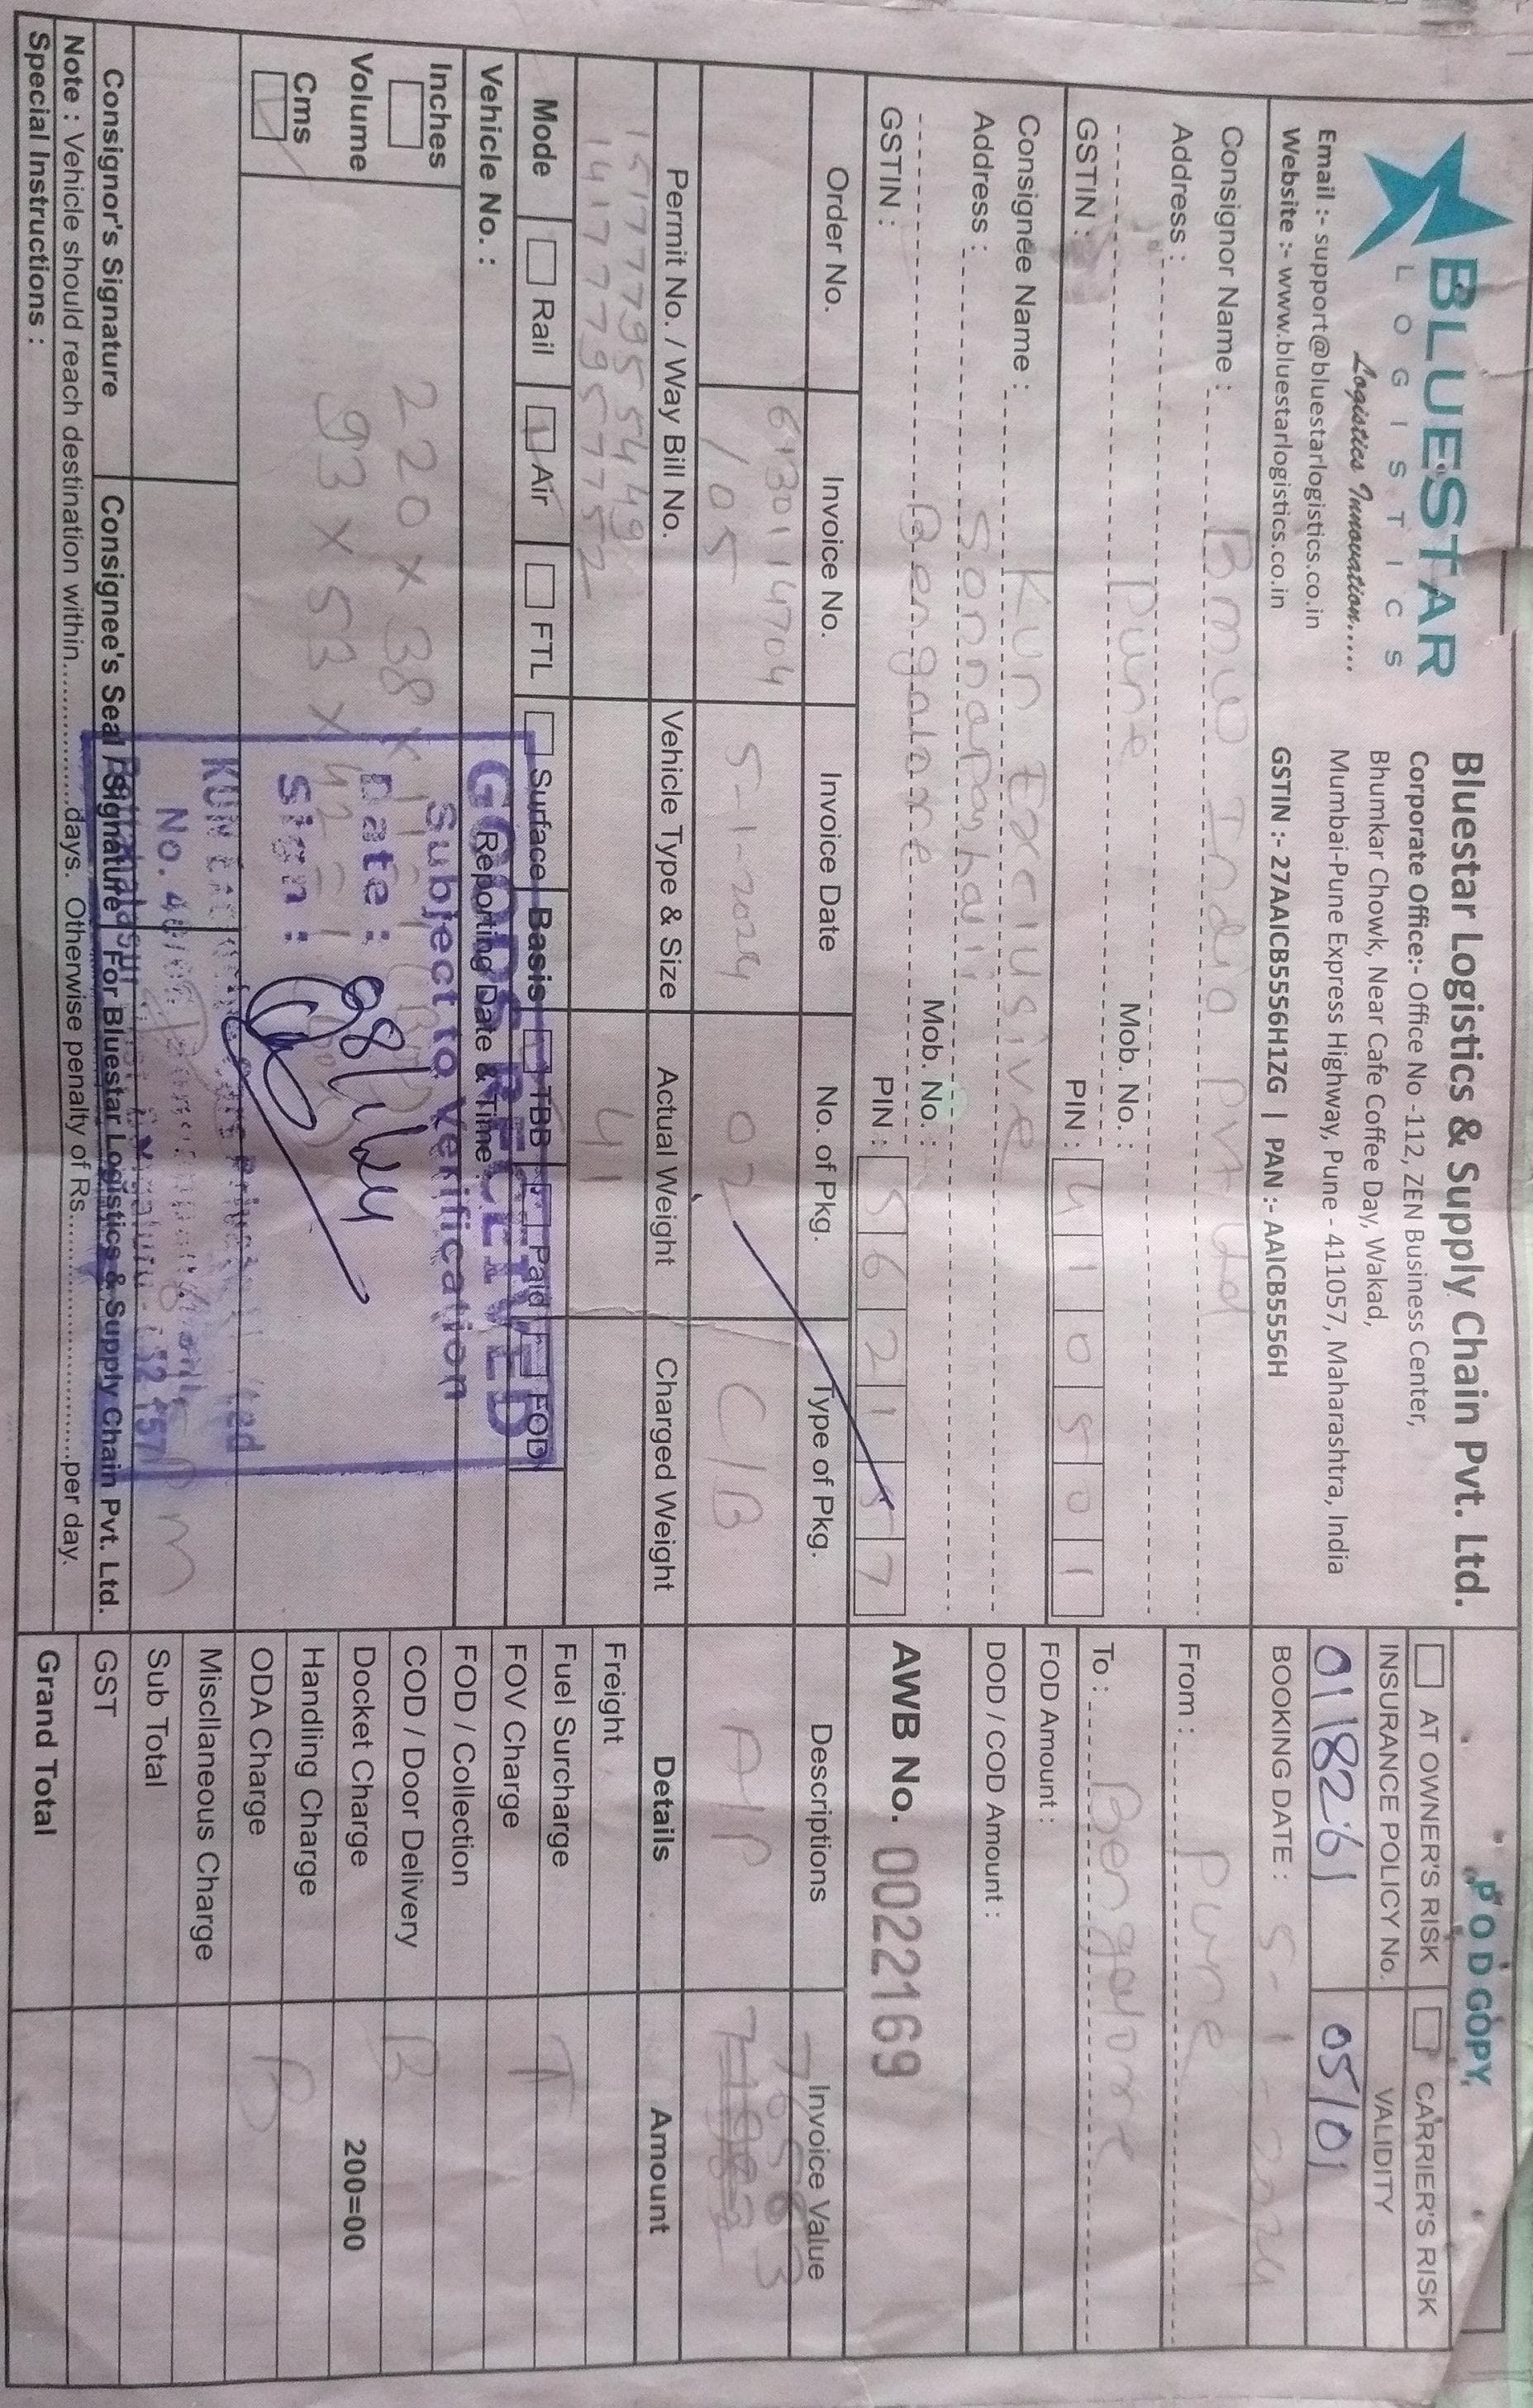 BLUESTAR
LOGISTICS
Logistics Innovation.....
Email :- support@bluestarlogistics.co.in
Website :- www.bluestarlogistics.co.in
Bluestar Logistics & Supply Chain Pvt. Ltd.
Corporate Office:- Office No -112, ZEN Business Center,
Bhumkar Chowk, Near Cafe Coffee Day, Wakad,
Mumbai-Pune Express Highway, Pune - 411057, Maharashtra, India
GSTIN :- 27AAICB5556H1ZG | PAN :- AAICB5556H
POD COPY
AT OWNER'S RISK CARRIER'S RISK
INSURANCE POLICY No. VALIDITY
0118261 05/01
BOOKING DATE : 5-1-2024
From : Pune
To : Bengalore
FOD Amount :
DOD / COD Amount :
AWB No. 0022169
Consignor Name : Bmw India Pvt Ltd
Address :
Pune Mob. No. :
GSTIN : PIN : 410501
Consignee Name : Kun Exclusive
Address :
Bengalore Mob. No. :
GSTIN : PIN : 562157
Order No. Invoice No. Invoice Date No. of Pkg. Type of Pkg. Descriptions Invoice Value
6130114704
/05 5-1-2024 02 C/B A/P
Permit No. / Way Bill No. Vehicle Type & Size Actual Weight Charged Weight
151777955449
141777957752 41
Mode Rail Air FTL Surface Basis TBB Paid FOD
Vehicle No. : Reporting Date & Time :
GOODS RECEIVED
Subject to Verification
Inches
Volume
Cms
220 x 38 x 11 = 1 (Box)
93 x 53 x 42 = 1 (Box)
Date : 08/1/24
Sign :
KUN Exclusive Cars Private Limited
No.
Bengaluru
Consignor's Signature Consignee's Seal / Signature For Bluestar Logistics & Supply Chain Pvt. Ltd.
Note : Vehicle should reach destination within.................days. Otherwise penalty of Rs..............................per day.
Special Instructions :
Details Amount
Freight
Fuel Surcharge T
FOV Charge
FOD / Collection
COD / Door Delivery B
Docket Charge 200=00
Handling Charge B
ODA Charge
Miscllaneous Charge
Sub Total
GST
Grand Total